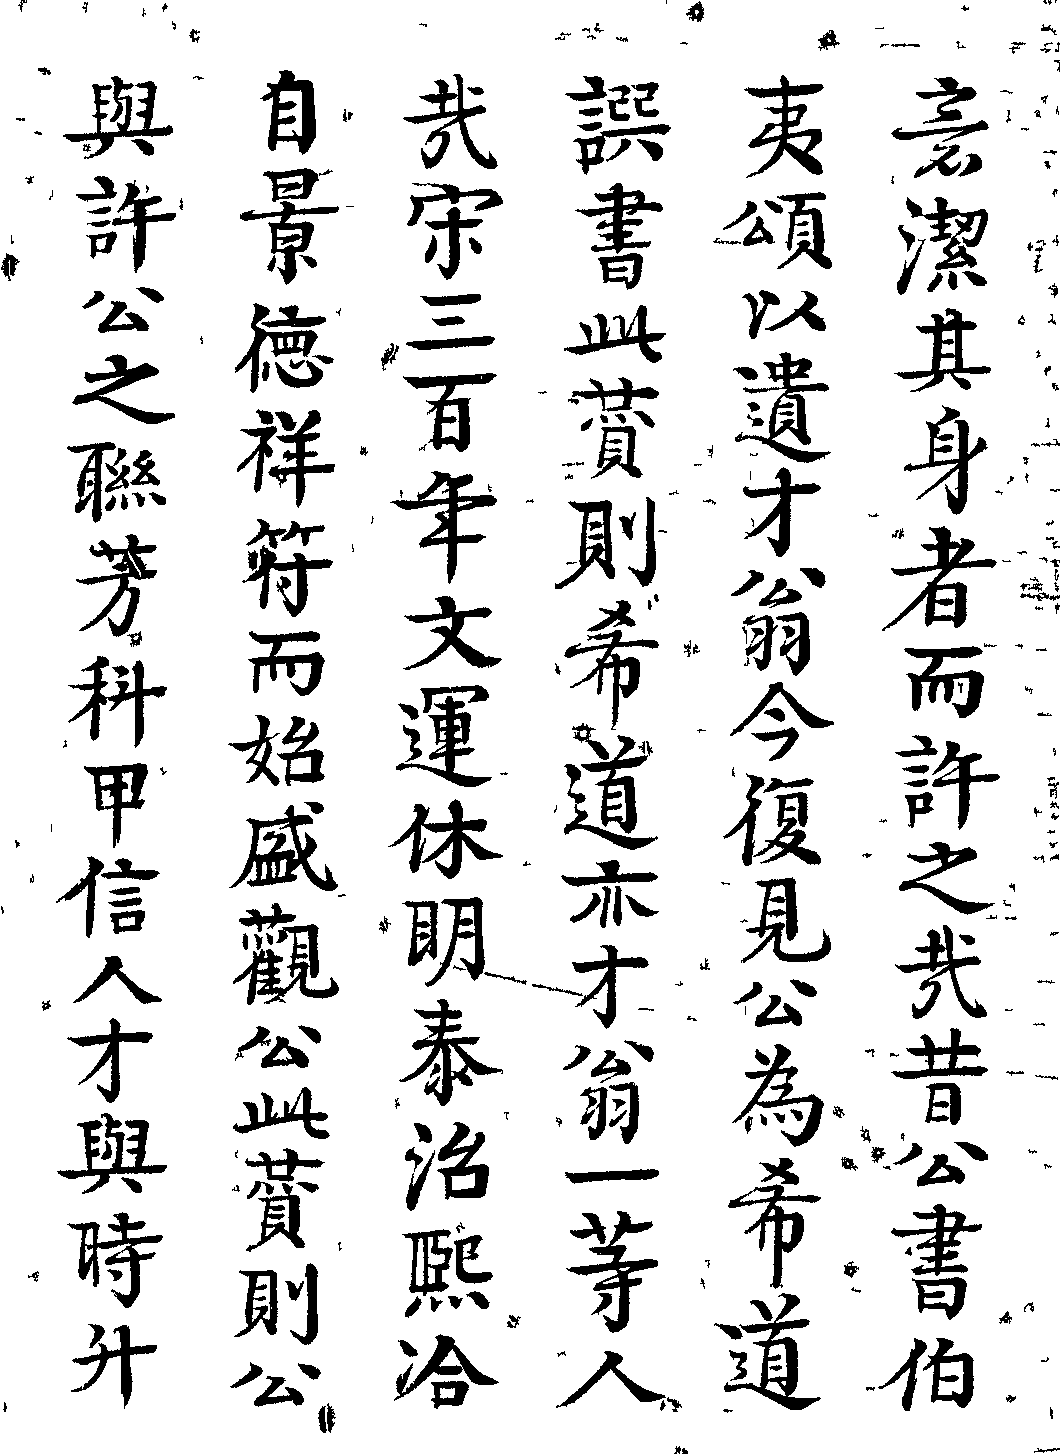 潔其身者而許之哉昔公書伯
夷頌以遺才翁今復見公為希道
譔書此賛則希道亦才翁一等人
哉宋三百年文運休明泰治熈洽
自景德祥符而始盛觀公此賛則公
與許公之聯芳科甲信人才與時升